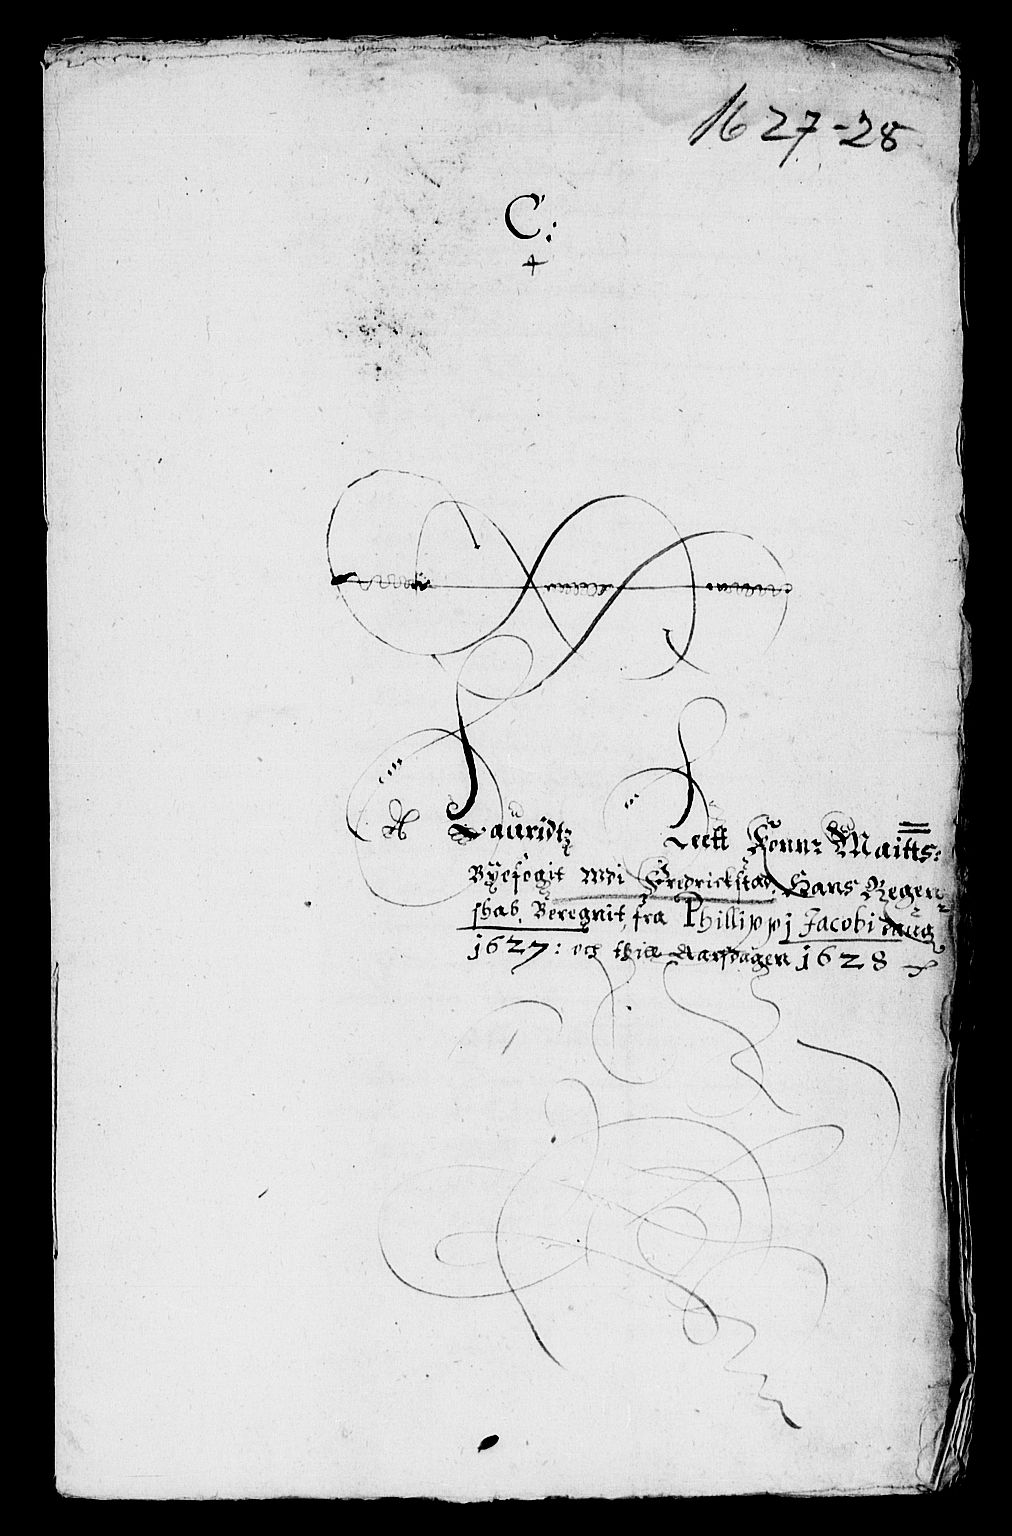 1627-28
C:
+
Lauridtz Leett Konn: Maitts:
Byefogit Wdi Fredrickstad, Hans Regen-
shab, Beregnit, fra Phillippj Jacobi daug
1627: och thill Aarsdagen 1628